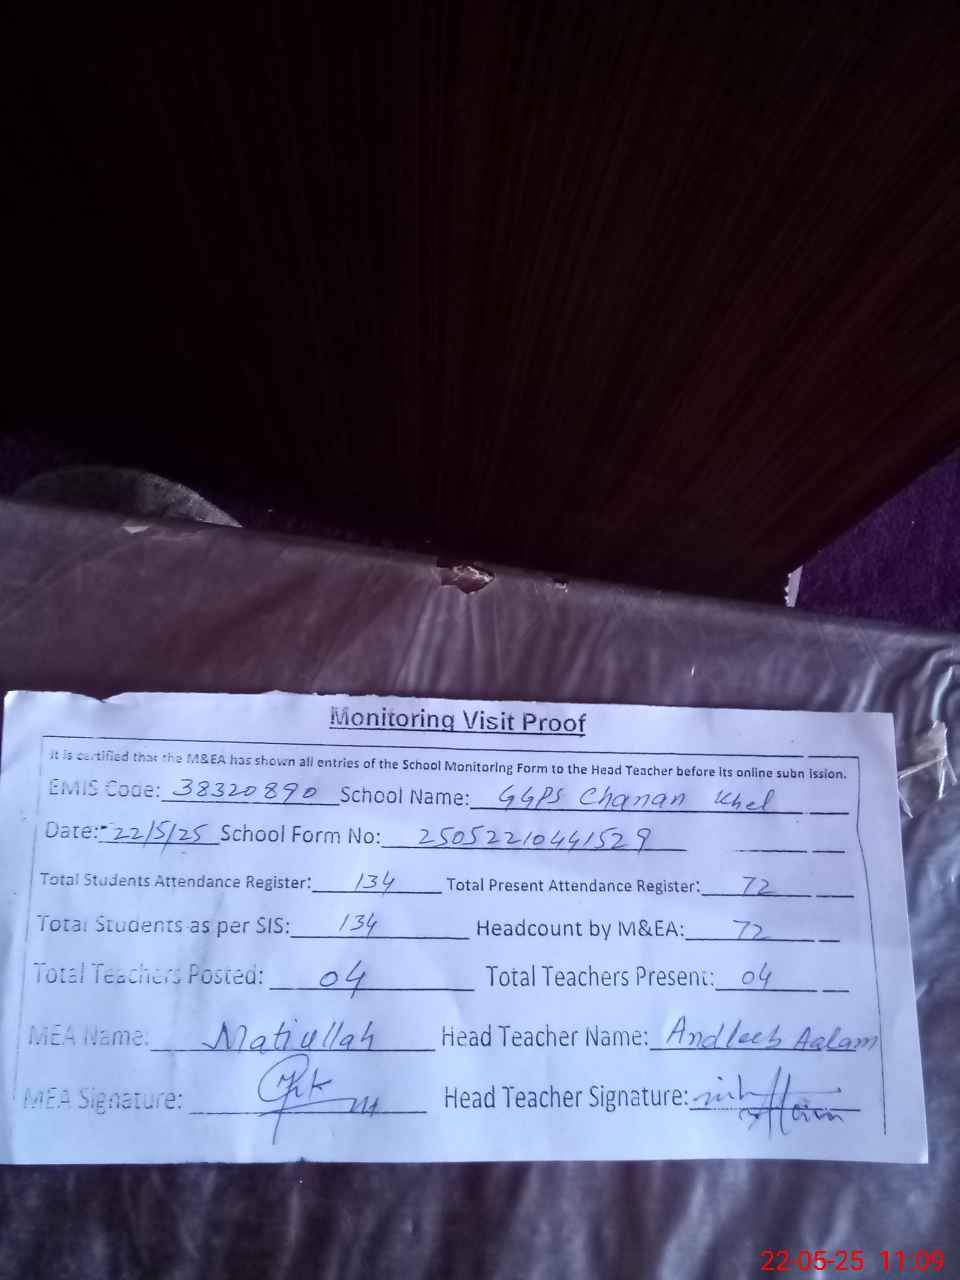 Monitoring Visit Proof
It is certified that the M&EA has shown all entries of the School Monitoring Form to the Head Teacher before its online subn ission.
EMIS Code: 38320890 School Name: GGPS Chanan Khel
Date: 22/5/25 School Form No: 25052210441529
Total Students Attendance Register: 134 Total Present Attendance Register: 72
Total Students as per SIS: 134 Headcount by M&EA: 72
Total Teachers Posted: 04 Total Teachers Present: 04
MEA Name: Matiullah Head Teacher Name: Andleeb Aalam
MEA Signature: Head Teacher Signature:
22-05-25 11:09